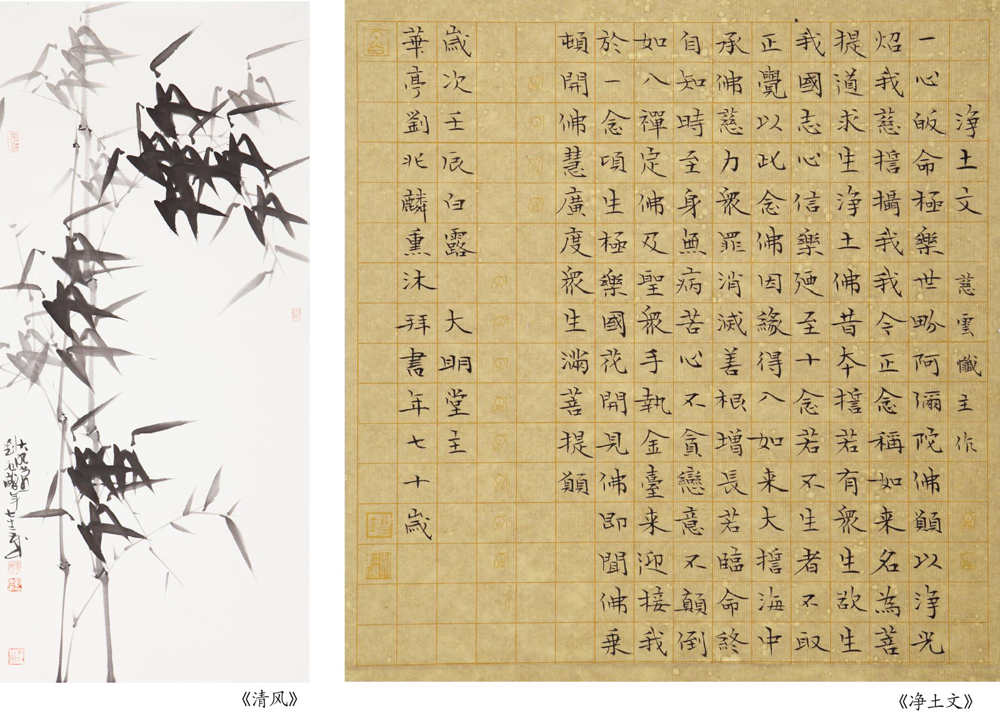 淨土文 慈雲懺主作
一心皈命極樂世畍阿彌陀佛願以淨光
炤我慈誓攝我我今正念稱如来名為菩
提道求生淨土佛昔本誓若有衆生欲生
我國志心信樂廼至十念若不生者不取
正覺以此念佛因緣得入如来大誓海中
承佛慈力衆罪消滅善根增長若臨命終
自知時至身無病苦心不貪戀意不顛倒
如入禪定佛及聖衆手執金臺来迎接我
於一念頃生極樂國花開見佛即聞佛乗
頓開佛慧廣度衆生滿菩提願
歲次壬辰白露 大明堂主
華亭劉兆麟熏沐拜書年七十歲
《清风》
《净土文》